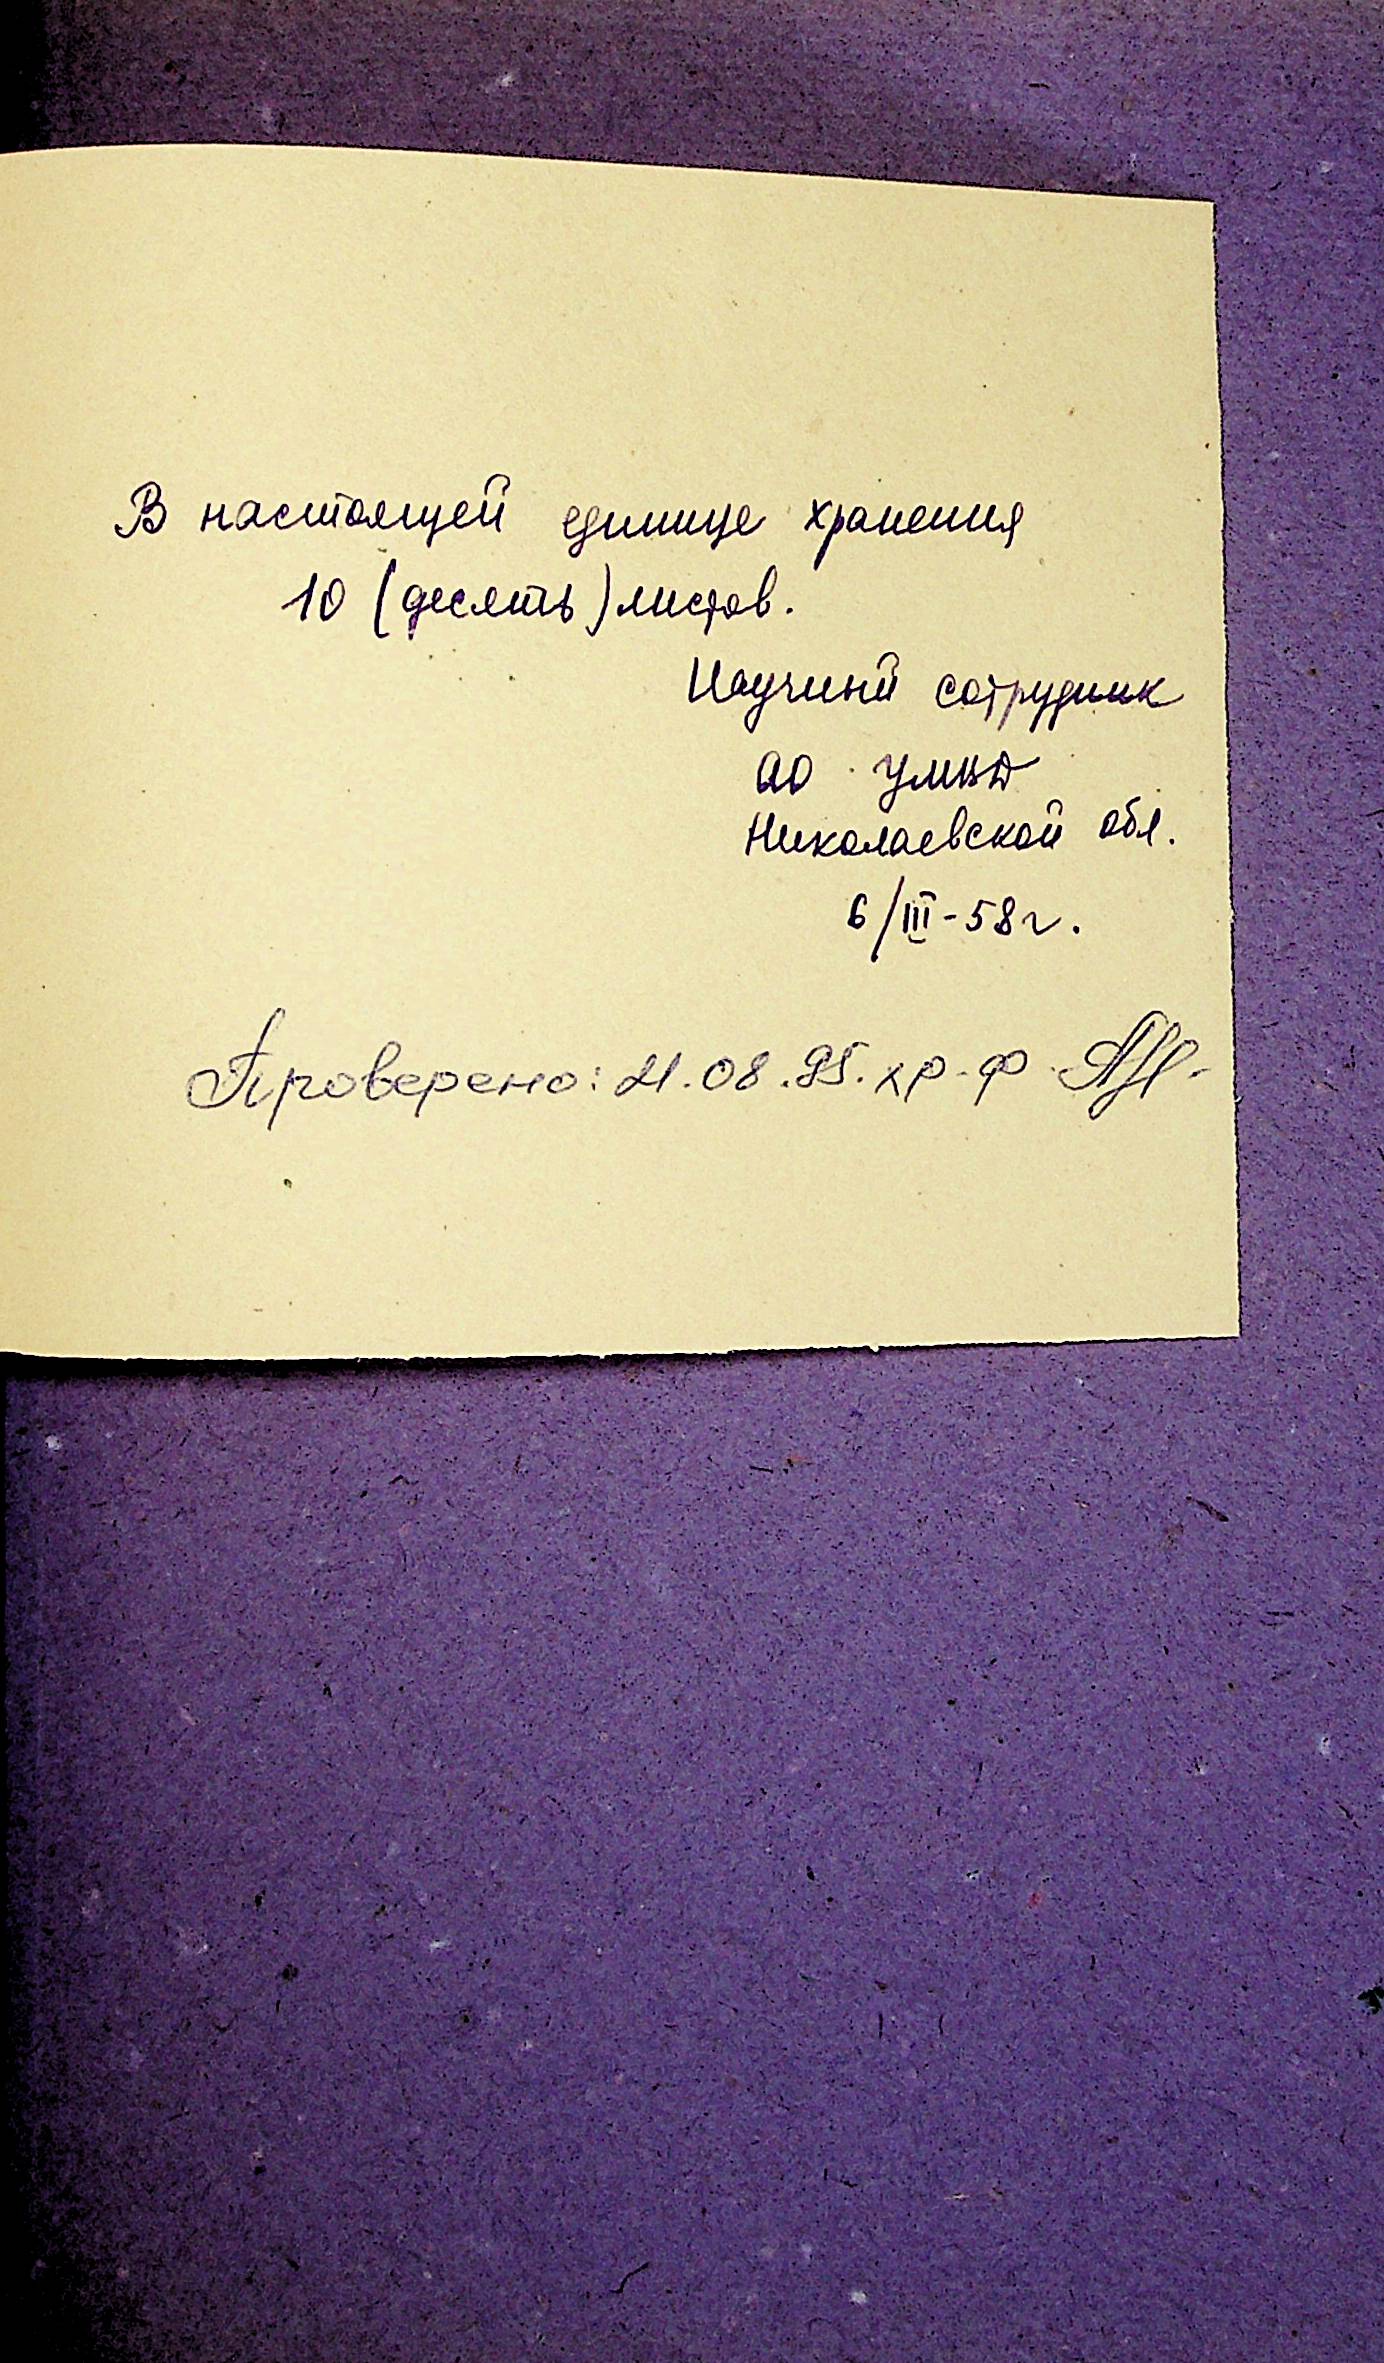 В настоящей единице хранения
10 (десять) листов.
Научный сотрудник
АО УМВД
Николаевской обл.
6/III-58г.
Проверено: 21.08.95. хр. ф.